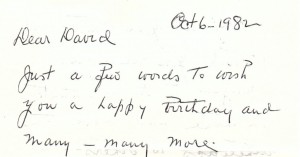 Oct 6-1982
Dear David
Just a few words to wish
you a happy birthday and
many - many more.